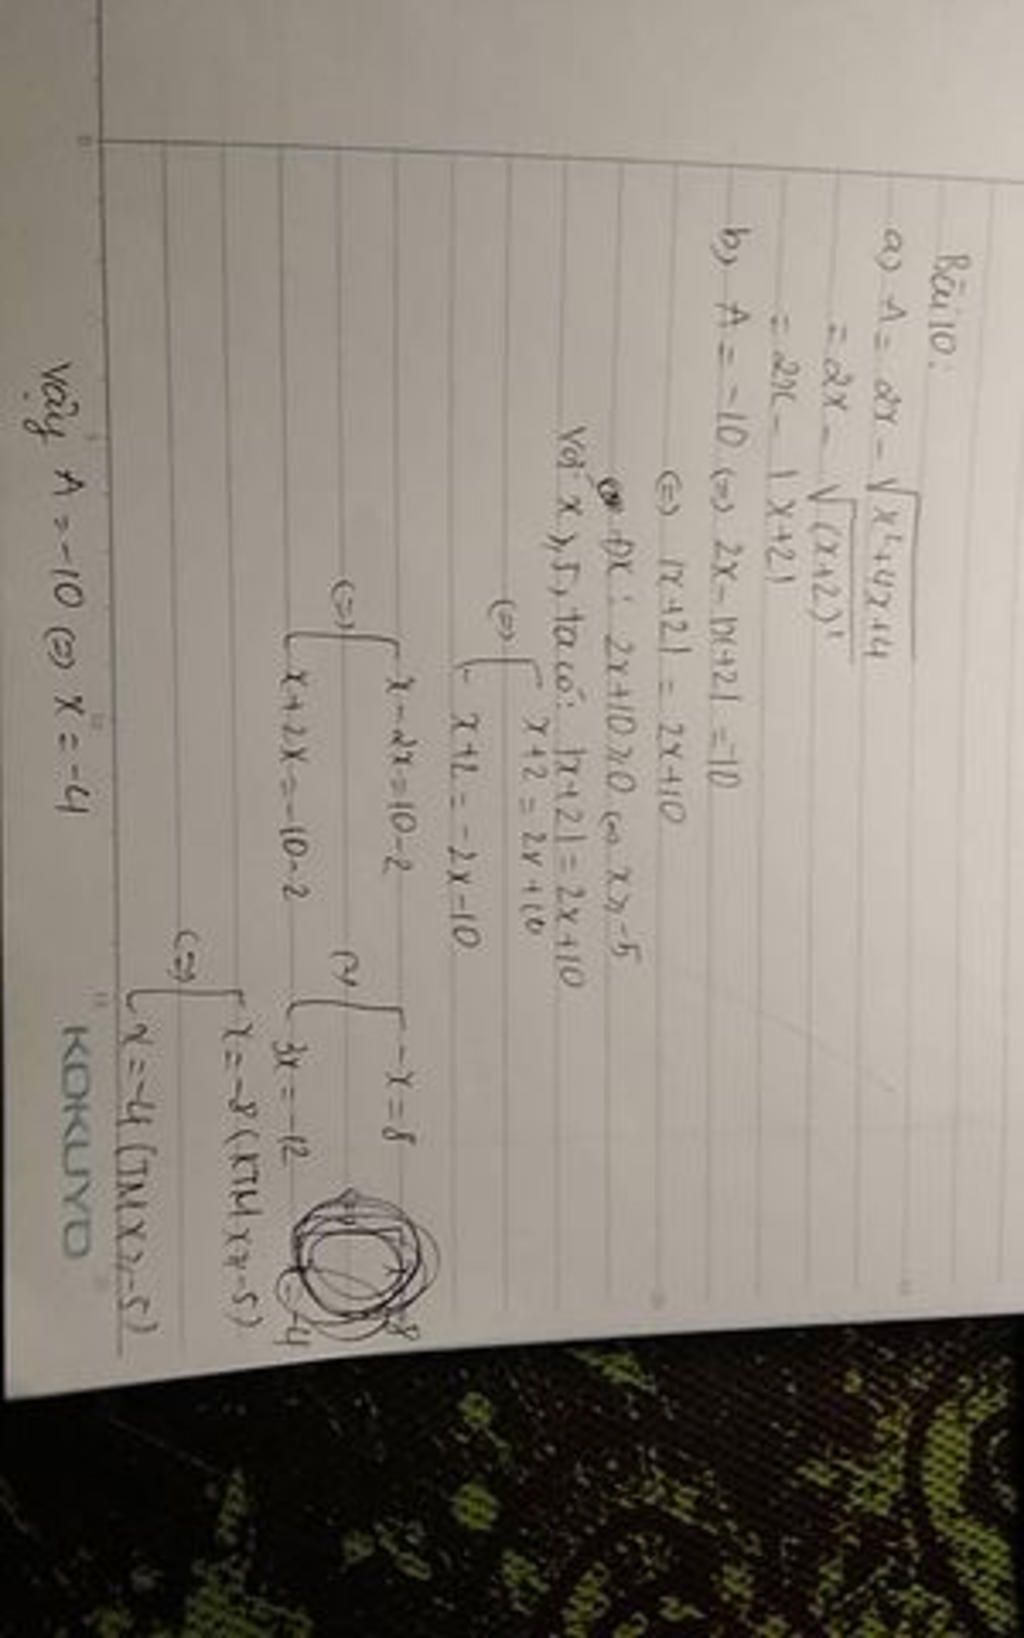 Bài 10:
a) A = 2x - √x²+4x+4
= 2x - √(x+2)²
= 2x - |x+2|
b, A = -10 (=) 2x - |x+2| = -10
(=) |x+2| = 2x+10
ĐK: 2x+10 ≥ 0 (=) x ≥ -5
Với x ≥ 5, ta có: |x+2| = 2x+10
(=) [ x+2 = 2x+10
x+2 = -2x-10
(=) [ x-2x = 10-2 (=) [ -x = 8
x+2x = -10-2 3x = -12
(=) [ x = -8 (KTM x ≥ -5)
x = -4 (TM x ≥ -5)
Vậy A = -10 (=) x = -4
KOKUYO